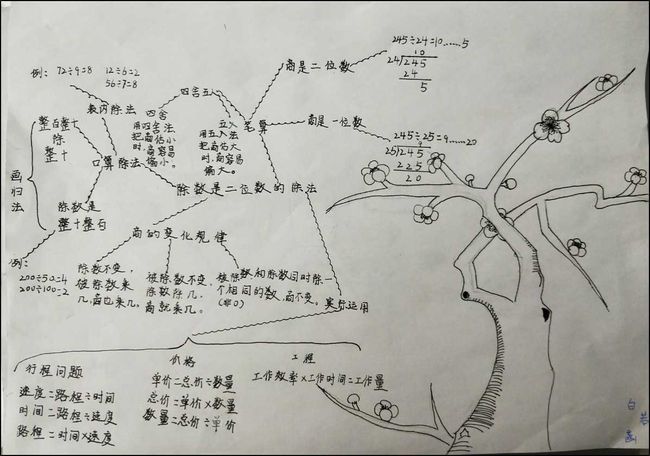 例：72÷9=8 12÷6=2
56÷7=8
表内除法
整百整十
除
整十
口算除法
画归法
除数是
整十整百
例：
200÷50=4
200÷100=2
四舍五入
四舍
用四舍法
把商估小
时，商容易
偏小。
五入
用五入法
把商估大
时，商容易
偏大。
笔算
商是二位数
245÷24=10……5
10
24 245
24
5
商是一位数
245÷25=9……20
9
25 245
225
20
除数是二位数的除法
商的变化规律
除数不变，
被除数乘
几，商也乘几。
被除数不变，
除数除几，
商就乘几。
被除数和除数同时除一
个相同的数，商不变。
(非0)
实际运用
行程问题
速度=路程÷时间
时间=路程÷速度
路程=时间×速度
价格
单价=总价÷数量
总价=单价×数量
数量=总价÷单价
工程
工作效率×工作时间=工作量